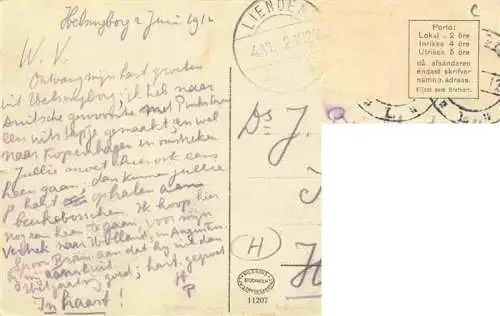 Helsingborg 2 Juni 1912
W. V.
Ontvang mijn hart. groeten
uit Helsingborg; ik heb naar
Duitsche gewoonte met Pinksteren
een uitstapje gemaakt, en wel
naar Kopenhagen en omstreken
Jullie moet hier ook eens
heen gaan; dan kunnen jullie
P hart ophalen aan
beukebosschen. Ik hoop hier
nog een keer te gaan, voor mijn
vertrek naar Holland, in Augustus.
Spoor Bram aan dat hij uit den
aanbeid
goed; hart. gegroet
H
P
In haast!
LIENDEN
4.12
Ds J.
H
H
STOCKHOLM
11207
Porto:
Lokal . 2 öre
Inrikes 4 öre
Utrikes 5 öre
då afsändaren
endast skrifver
namn o. adress.
Eljest som brefkort.